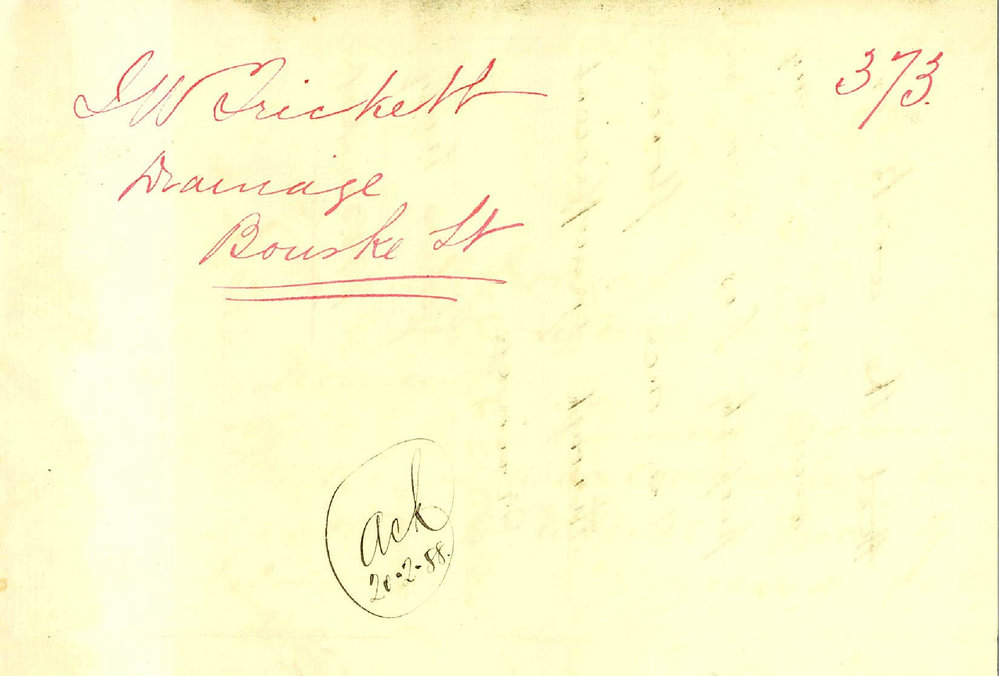 J W Trickett 373.
Drainage
Bourke St
Ack
20.2.88.